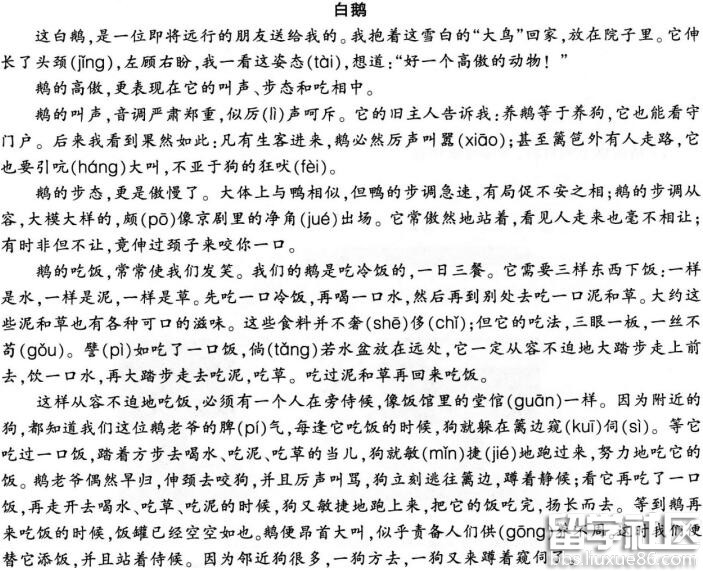 白鹅
这白鹅,是一位即将远行的朋友送给我的。我抱着这雪白的“大鸟”回家,放在院子里。它伸
长了头颈(jǐng),左顾右盼,我一看这姿态(tài),想道:“好一个高傲的动物!”
鹅的高傲,更表现在它的叫声、步态和吃相中。
鹅的叫声,音调严肃郑重,似厉(lì)声呵斥。它的旧主人告诉我:养鹅等于养狗,它也能看守
门户。后来我看到果然如此:凡有生客进来,鹅必然厉声叫嚣(xiāo);甚至篱笆外有人走路,它
也要引吭(háng)大叫,不亚于狗的狂吠(fèi)。
鹅的步态,更是傲慢了。大体上与鸭相似,但鸭的步调急速,有局促不安之相;鹅的步调从
容,大模大样的,颇(pō)像京剧里的净角(jué)出场。它常傲然地站着,看见人走来也毫不相让;
有时非但不让,竟伸过颈子来咬你一口。
鹅的吃饭,常常使我们发笑。我们的鹅是吃冷饭的,一日三餐。它需要三样东西下饭:一样
是水,一样是泥,一样是草。先吃一口冷饭,再喝一口水,然后再到别处去吃一口泥和草。大约这
些泥和草也有各种可口的滋味。这些食料并不奢(shē)侈(chǐ);但它的吃法,三眼一板,一丝不
苟(gǒu)。譬(pì)如吃了一口饭,倘(tǎng)若水盆放在远处,它一定从容不迫地大踏步走上前
去,饮一口水,再大踏步走去吃泥,吃草。吃过泥和草再回来吃饭。
这样从容不迫地吃饭,必须有一个人在旁侍候,像饭馆里的堂倌(guān)一样。因为附近的
狗,都知道我们这位鹅老爷的脾(pí)气,每逢它吃饭的时候,狗就躲在篱边窥(kuī)伺(sì)。等它
吃过一口饭,踏着方步去喝水、吃泥、吃草的当儿,狗就敏(mǐn)捷(jié)地跑过来,努力地吃它的
饭。鹅老爷偶然早归,伸颈去咬狗,并且厉声叫骂,狗立刻逃往篱边,蹲着静候;看它再吃了一口
饭,再走开去喝水、吃草、吃泥的时候,狗又敏捷地跑上来,把它的饭吃完,扬长而去。等到鹅再
来吃饭的时候,饭罐已经空空如也。鹅便昂首大叫,似乎责备人们供(gōng)养不周。这时我们便
替它添饭,并且站着侍候。因为邻近狗很多,一狗方去,一狗又来蹲着窥伺了。
留学社区
bbs.liuxue86.com